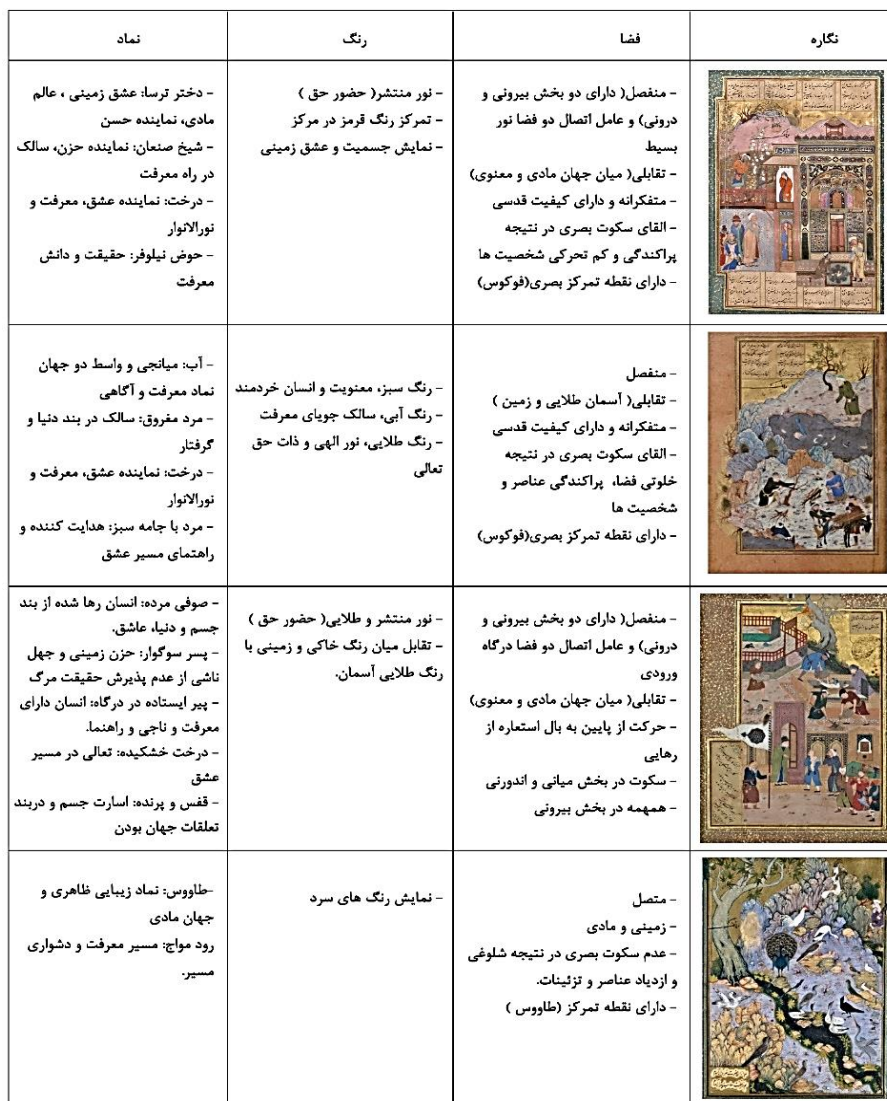 نگاره
فضا
رنگ
نماد
- منفصل( دارای دو بخش بیرونی و
درونی) و عامل اتصال دو فضا نور
بسیط
- تقابلی( میان جهان مادی و معنوی)
- متفکرانه و دارای کیفیت قدسی
- القای سکوت بصری در نتیجه
پراکندگی و کم تحرکی شخصیت ها
- دارای نقطه تمرکز بصری(فوکوس)
- نور منتشر( حضور حق )
- تمرکز رنگ قرمز در مرکز
- نمایش جسمیت و عشق زمینی
- دختر ترسا: عشق زمینی ، عالم
مادی، نماینده حسن
- شیخ صنعان: نماینده حزن، سالک
در راه معرفت
- درخت: نماینده عشق، معرفت و
نورالانوار
- حوض نیلوفر: حقیقت و دانش
معرفت
- منفصل
- تقابلی( آسمان طلایی و زمین )
- متفکرانه و دارای کیفیت قدسی
- القای سکوت بصری در نتیجه
خلوتی فضا، پراکندگی عناصر و
شخصیت ها
- دارای نقطه تمرکز بصری(فوکوس)
- رنگ سبز، معنویت و انسان خردمند
- رنگ آبی، سالک جویای معرفت
- رنگ طلایی، نور الهی و ذات حق
تعالی
- آب: میانجی و واسط دو جهان
نماد معرفت و آگاهی
- مرد مغروق: سالک در بند دنیا و
گرفتار
- درخت: نماینده عشق، معرفت و
نورالانوار
- مرد با جامه سبز: هدایت کننده و
راهنمای مسیر عشق
- منفصل( دارای دو بخش بیرونی و
درونی) و عامل اتصال دو فضا درگاه
ورودی
- تقابلی( میان جهان مادی و معنوی)
- حرکت از پایین به بال استعاره از
رهایی
- سکوت در بخش میانی و اندورنی
- همهمه در بخش بیرونی
- نور منتشر و طلایی( حضور حق )
- تقابل میان رنگ خاکی و زمینی با
رنگ طلایی آسمان.
- صوفی مرده: انسان رها شده از بند
جسم و دنیا، عاشق.
- پسر سوگوار: حزن زمینی و جهل
ناشی از عدم پذیرش حقیقت مرگ
- پیر ایستاده در درگاه: انسان دارای
معرفت و ناجی و راهنما.
- درخت خشکیده: تعالی در مسیر
عشق
- قفس و پرنده: اسارت جسم و دربند
تعلقات جهان بودن
- متصل
- زمینی و مادی
- عدم سکوت بصری در نتیجه شلوغی
و ازدیاد عناصر و تزئینات.
- دارای نقطه تمرکز (طاووس )
- نمایش رنگ های سرد
-طاووس: نماد زیبایی ظاهری و
جهان مادی
رود مواج: مسیر معرفت و دشواری
مسیر.